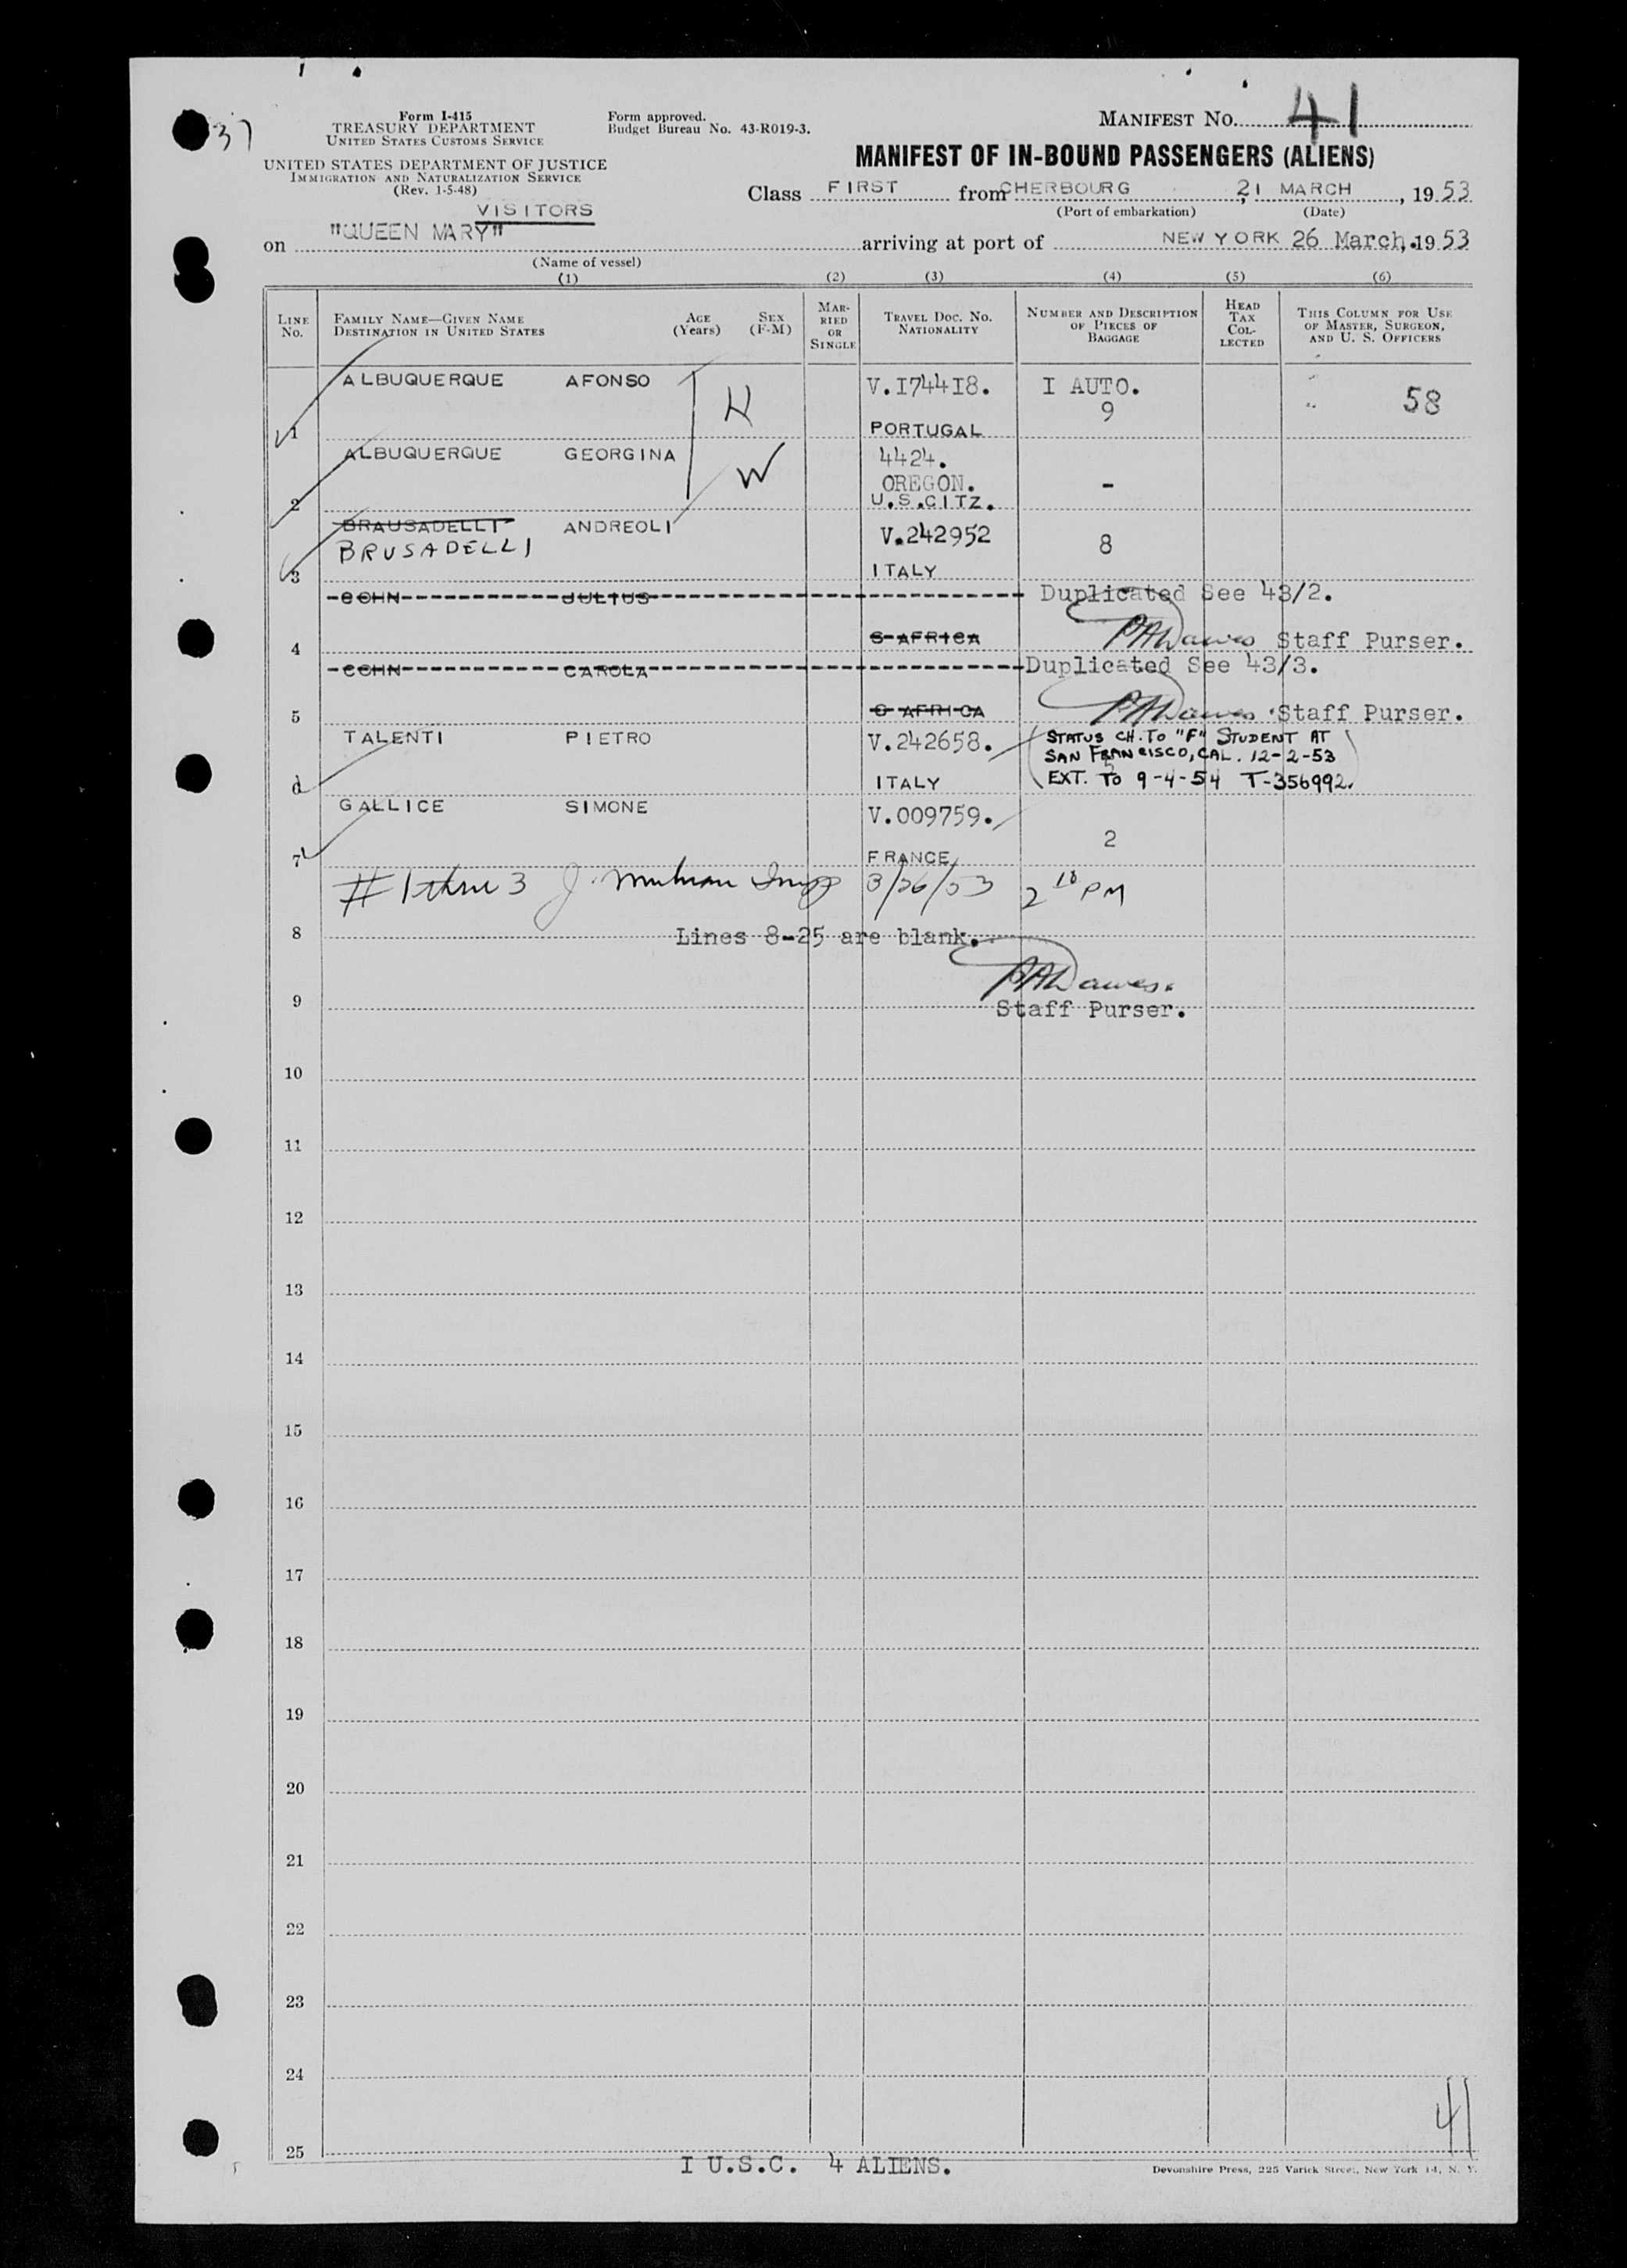 37
Form I-415
TREASURY DEPARTMENT
UNITED STATES CUSTOMS SERVICE
UNITED STATES DEPARTMENT OF JUSTICE
IMMIGRATION AND NATURALIZATION SERVICE
(Rev. 1-5-48)
Form approved.
Budget Bureau No. 43-R019-3.
MANIFEST NO. 41
MANIFEST OF IN-BOUND PASSENGERS (ALIENS)
Class FIRST from CHERBOURG, 21 MARCH, 1953
(Port of embarkation) (Date)
VISITORS
on "QUEEN MARY" arriving at port of NEW YORK 26 March, 1953
(Name of vessel)
(1) (2) (3) (4) (5) (6)
LINE NO.
FAMILY NAME—GIVEN NAME
DESTINATION IN UNITED STATES
AGE (Years)
SEX (F-M)
MARRIED OR SINGLE
TRAVEL DOC. NO.
NATIONALITY
NUMBER AND DESCRIPTION OF PIECES OF BAGGAGE
HEAD TAX COLLECTED
THIS COLUMN FOR USE OF MASTER, SURGEON, AND U. S. OFFICERS
ALBUQUERQUE AFONSO H V.I744I8. I AUTO.
9 58
1 PORTUGAL
ALBUQUERQUE GEORGINA W 4424.
OREGON. -
2 U.S.CITZ.
BRAUSADELLI ANDREOLI V.242952
BRUSADELLI 8
3 ITALY
COHN JULIUS Duplicated See 43/2.
4 S AFRICA Dawes Staff Purser.
COHN CAROLA Duplicated See 43/3.
5 S AFRICA Dawes Staff Purser.
TALENTI PIETRO V.242658. STATUS CH. TO "F" STUDENT AT
SAN FRANCISCO, CAL. 12-2-53
5
6 ITALY EXT. TO 9-4-54 T-356992.
GALLICE SIMONE V.009759.
2
7 FRANCE
#1 thru 3 3/26/53 2 10 PM
8 Lines 8-25 are blank.
Dawes.
9 Staff Purser.
10
11
12
13
14
15
16
17
18
19
20
21
22
23
24
41
25
I U.S.C. 4 ALIENS.
Devonshire Press, 225 Varick Street, New York 14, N. Y.